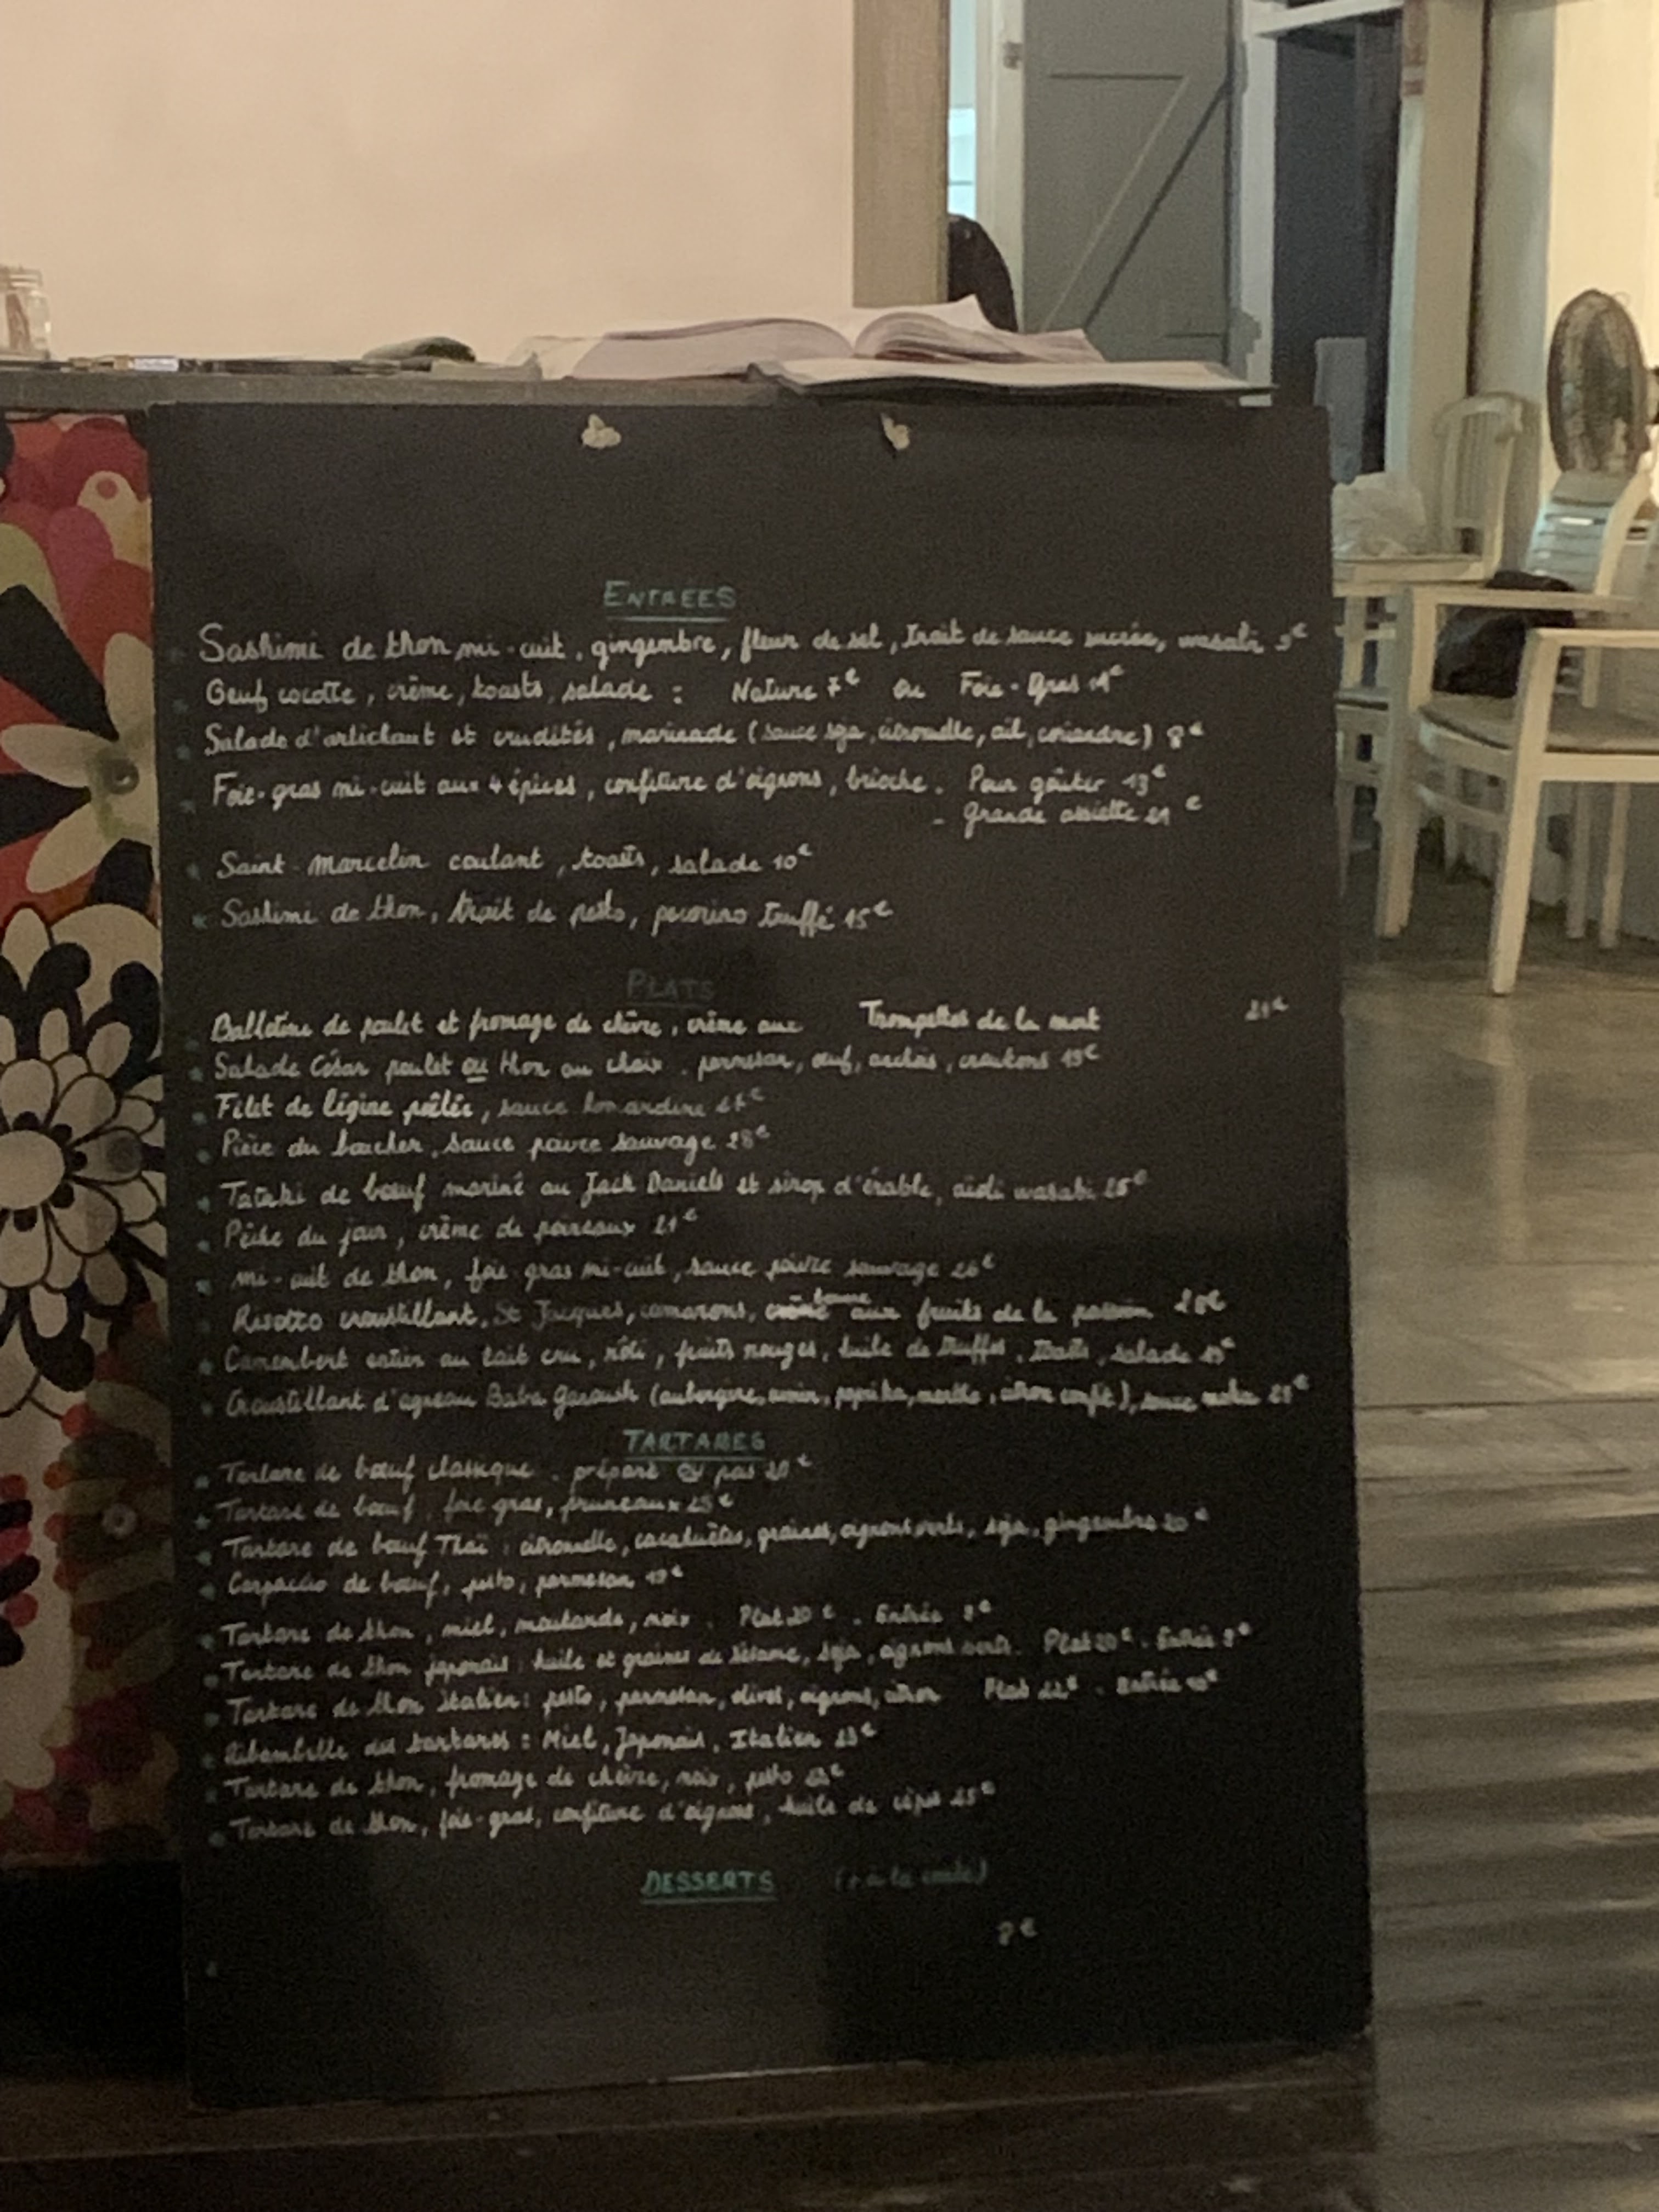 ENTREES
Sashimi de thon mi-cuit, gingembre, fleur de sel, trait de sauce sucrée, wasabi 9€
Oeuf cocotte, crème, toasts, salade : Nature 7€ ou Foie-Gras
Salade d'artichaut et crudités, marinade (sauce soja, citronelle, ail, coriandre) 8€
Foie-gras mi-cuit aux 4 épices, confiture d'oignons, brioche. Pour goûter 13€
- Grande assiette 21€
Saint-Marcelin coulant, toasts, salade 10€
Sashimi de thon, trait de pesto, pecorino truffé 15€
PLATS
Ballotine de poulet et fromage de chèvre, crème aux Trompettes de la mort 21€
Salade César poulet ou thon au choix. parmesan, œuf, anchois, croutons 19€
Filet de légine poêlée, sauce homardine
Pièce du boucher, sauce poivre sauvage 28€
Tataki de bœuf mariné au Jack Daniels et sirop d'érable, aïoli wasabi 25€
Pêche du jour, crème de poireaux 21€
mi-cuit de thon, foie gras mi-cuit, sauce poivre sauvage 26€
Risotto croustillant, St Jacques, camarons, aux fruits de la passion
Camembert entier au lait cru, rôti, fruits rouges, huile de truffes, toasts, salade
Croustillant d'agneau Baba Ganoush (aubergine, cumin, paprika, menthe, citron confit), sauce
TARTARES
Tartare de bœuf classique. préparé ou pas 20€
Tartare de bœuf, foie gras, pruneaux 25€
Tartare de bœuf Thaï : citronelle, cacahuètes, graines, oignons verts, soja, gingembre 20€
Carpaccio de bœuf, pesto, parmesan 19€
Tartare de thon, miel, moutarde, noix. Plat 20€. Entrée 9€
Tartare de thon japonais : huile et graines de sésame, soja, oignons verts. Plat 20€. Entrée 9€
Tartare de thon italien : pesto, parmesan, olives, oignons, citron Plat 22€. Entrée 10€
Ribambelle des tartares : Miel, Japonais, Italien 23€
Tartare de thon, fromage de chèvre, noix, pesto
Tartare de thon, foie-gras, confiture d'oignons, huile de cèpes 25€
DESSERTS (+ à la carte)
8€